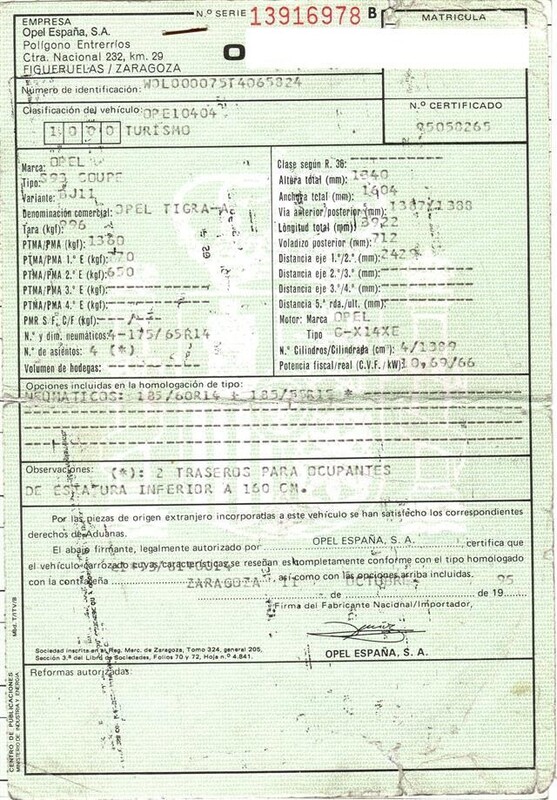 EMPRESA
Opel España, S.A.
Polígono Entrerríos
Ctra. Nacional 232, km. 29
FIGUERUELAS / ZARAGOZA
N.º SERIE 13916978 B
O
MATRICULA
Número de identificación: W0L000075T4065824
Clasificación del vehículo: OPE10404
1000 TURISMO
N.º CERTIFICADO
95050265
Marca: OPEL
Tipo: S93 COUPE
Variante: BJ11
Denominación comercial: OPEL TIGRA-A
Tara (kgf): 996
PTMA/PMA (kgf): 1360
PTMA/PMA 1.º E (kgf): 770
PTMA/PMA 2.º E (kgf): 650
PTMA/PMA 3.º E (kgf):
PTMA/PMA 4.º E (kgf):
PMR S/F, C/F (kgf):
N.º y dim. neumáticos: 4-175/65R14
N.º de asientos: 4 (*)
Volumen de bodegas:
Clase según R. 36:
Altura total (mm): 1340
Anchura total (mm): 1604
Vía anterior/posterior (mm): 1387/1388
Longitud total (mm): 3922
Voladizo posterior (mm): 712
Distancia eje 1.º/2.º (mm): 2429
Distancia eje 2.º/3.º (mm):
Distancia eje 3.º/4.º (mm):
Distancia 5.ª rda./ult. (mm):
Motor: Marca OPEL
Tipo C-X14XE
N.º Cilindros/Cilindrada (cm³): 4/1389
Potencia fiscal/real (C.V.F./kW): 10,69/66
Opciones incluidas en la homologación de tipo:
NEUMATICOS: 185/60R14 + 185/55R15 *
Observaciones: (*): 2 TRASEROS PARA OCUPANTES
DE ESTATURA INFERIOR A 160 CM.
Por las piezas de origen extranjero incorporadas a este vehículo se han satisfecho los correspondientes
derechos de Aduanas.
El abajo firmante, legalmente autorizado por OPEL ESPAÑA, S. A. certifica que
el vehículo carrozado cuyas características se reseñan es completamente conforme con el tipo homologado
con la contraseña así como con las opciones arriba incluidas.
ZARAGOZA 11 de OCTUBRE de 1995
Firma del Fabricante Nacional/Importador,
OPEL ESPAÑA, S. A.
Sociedad inscrita en el Reg. Marc. de Zaragoza, Tomo 324, general 205,
Sección 3.ª del Libro de Sociedades, Folios 70 y 72, Hoja n.º 4.841.
Reformas autorizadas:
Mod. T/ITV/B
CENTRO DE PUBLICACIONES
MINISTERIO DE INDUSTRIA Y ENERGIA